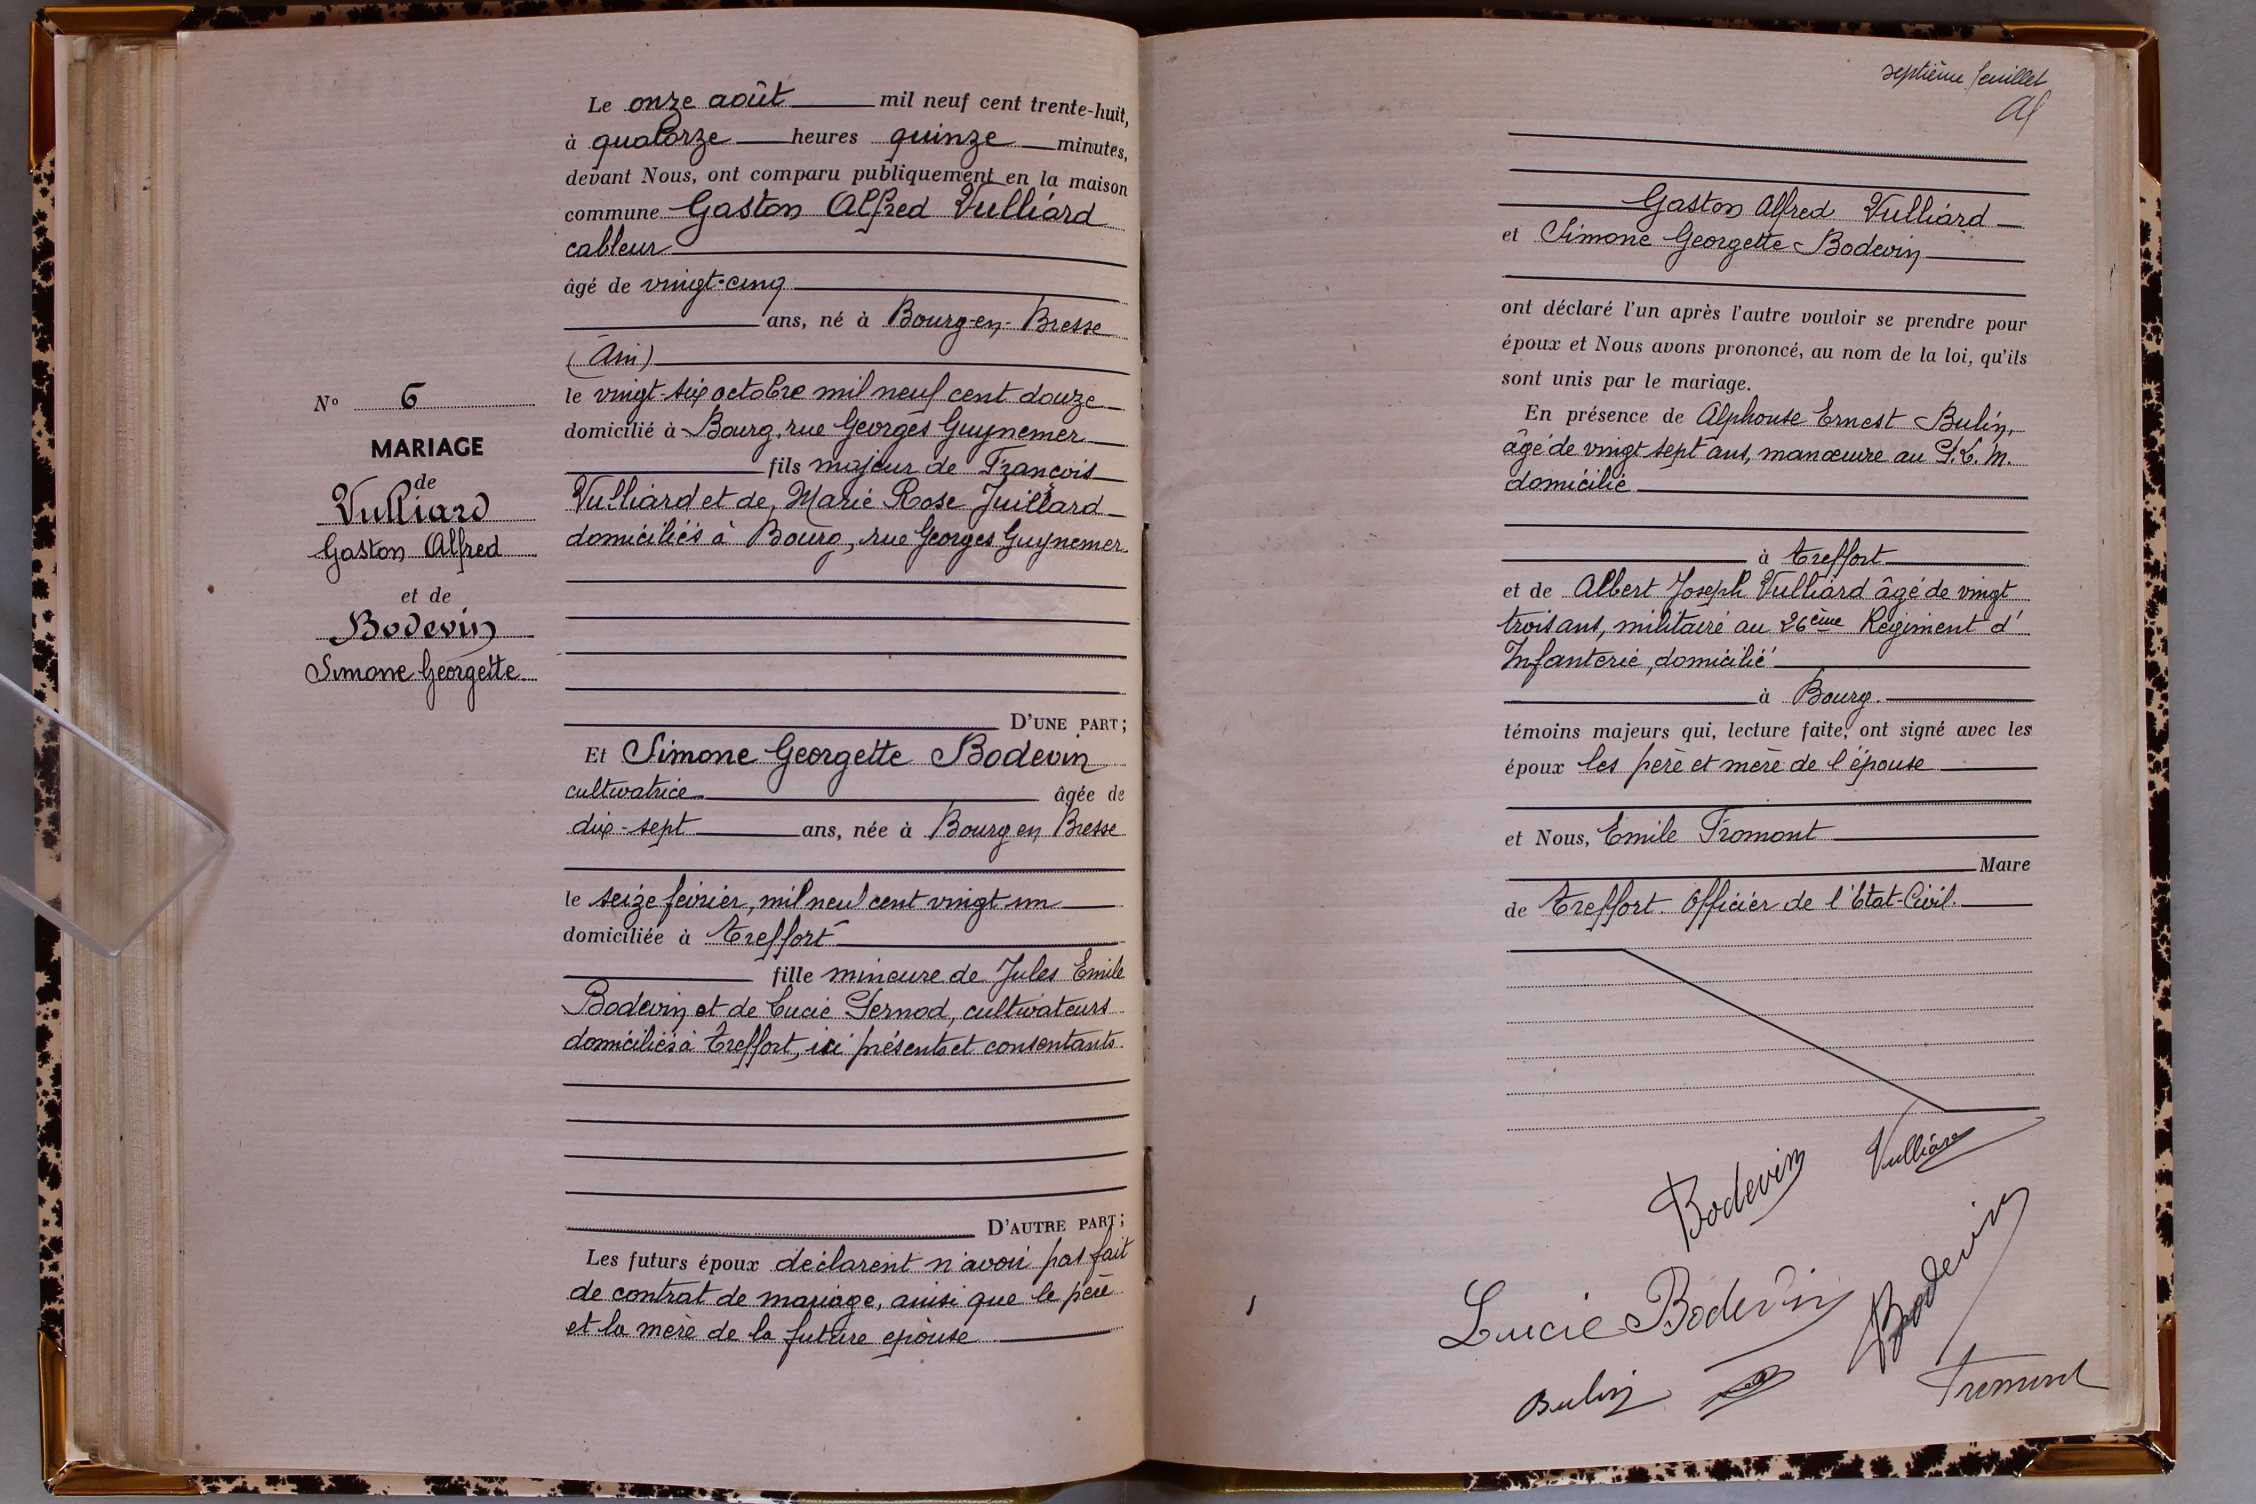 Le onze août mil neuf cent trente-huit,
à quatorze heures quinze minutes,
devant Nous, ont comparu publiquement en la maison
commune Gaston Alfred Vulliard
cableur
âgé de vingt-cinq
ans, né à Bourg-en-Bresse
(Ain)
le vingt-six octobre mil neuf cent douze
domicilié à Bourg, rue Georges Guynemer
fils majeur de François
Vulliard et de Marie Rose Juillard
domiciliés à Bourg, rue Georges Guynemer
N° 6
MARIAGE
de
Vulliard
Gaston Alfred
et de
Bodevin
Simone Georgette
D'UNE PART;
Et Simone Georgette Bodevin
cultivatrice âgée de
dix-sept ans, née à Bourg en Bresse
le seize février, mil neuf cent vingt un
domiciliée à Treffort
fille mineure de Jules Emile
Bodevin et de Lucie Pernod, cultivateurs
domiciliés à Treffort, ici présents et consentants.
D'AUTRE PART;
Les futurs époux déclarent n'avoir pas fait
de contrat de mariage, ainsi que le père
et la mère de la future épouse
septième feuillet
Gaston Alfred Vulliard
et Simone Georgette Bodevin
ont déclaré l'un après l'autre vouloir se prendre pour
époux et Nous avons prononcé, au nom de la loi, qu'ils
sont unis par le mariage.
En présence de Alphonse Ernest Bulin,
âgé de vingt sept ans, manœuvre au P.L.M.
domicilié
à Treffort
et de Albert Joseph Vulliard âgé de vingt
trois ans, militaire au 26ème Régiment d'
Infanterie, domicilié
à Bourg.
témoins majeurs qui, lecture faite, ont signé avec les
époux les père et mère de l'épouse
et Nous, Emile Fromont
Maire
de Treffort. Officier de l'Etat-Civil.
Bodevin Vulliard
Lucie Bodevin Bodevin
Bulin Fromont